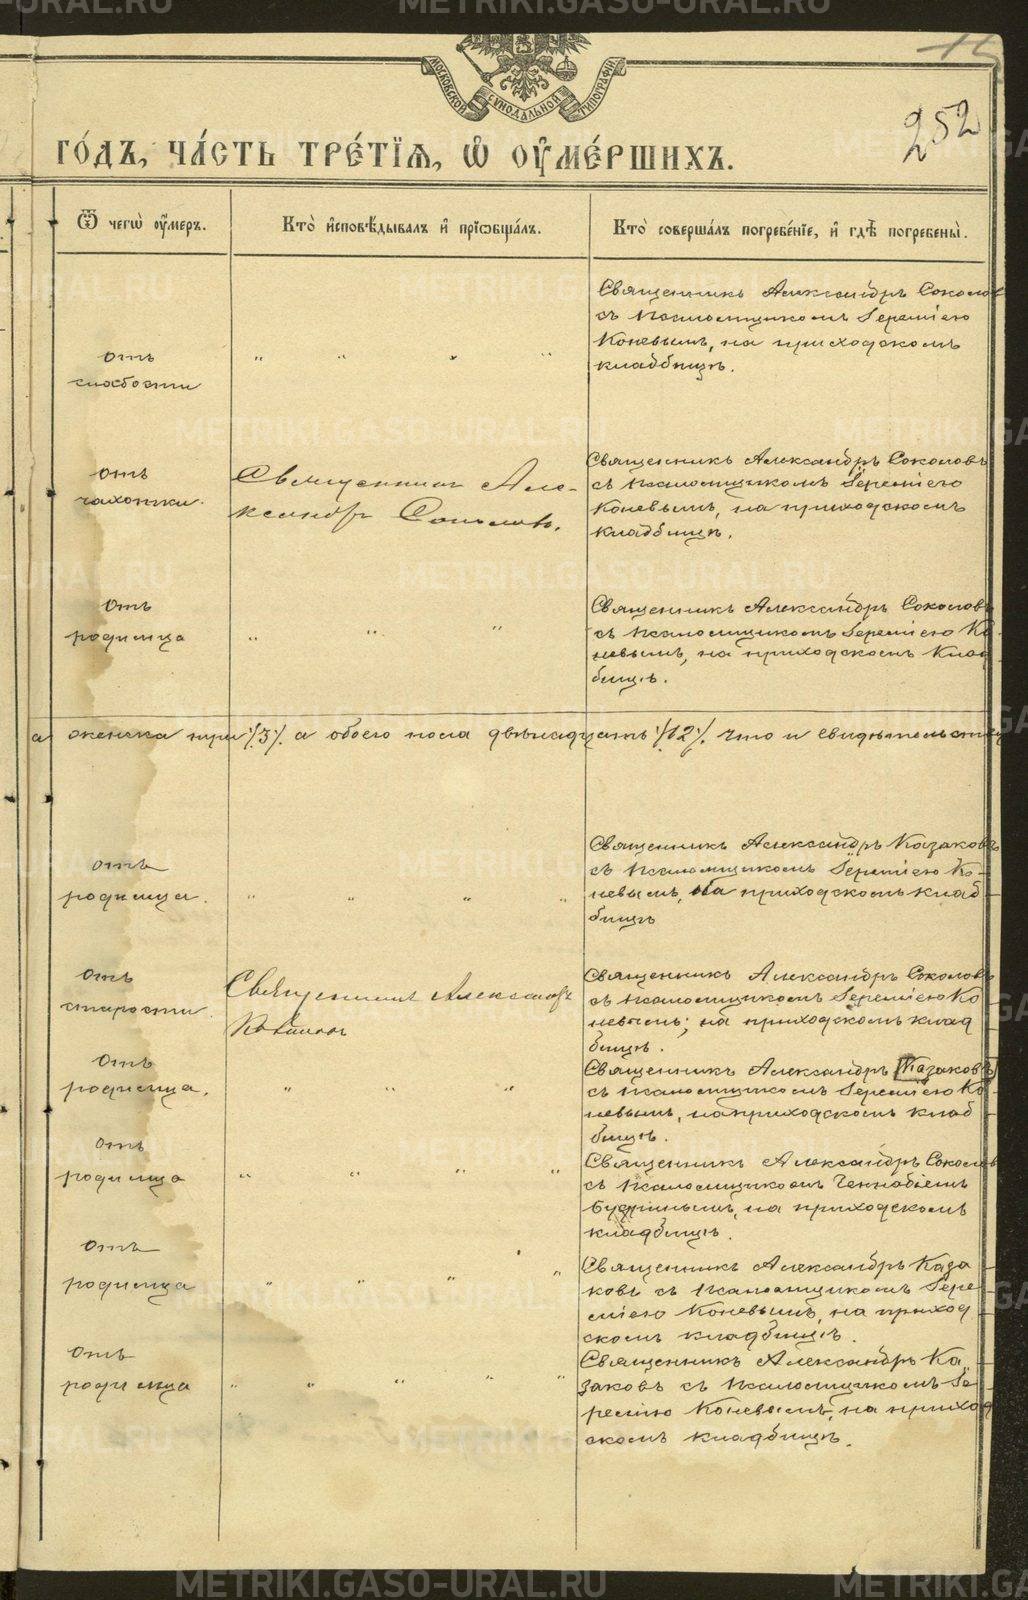 МОСКОВСКОЙ СѴНОДАЛЬНОЙ ТИПОГРАФІИ
252
ГО́ДЪ, ЧА́СТЬ ТРЕ́ТІѦ, Ѡ҆ ОУ҆МЕ́РШИХЪ.
Ѿ чегѡ̀ оу҆́меръ.
Кто̀ и҆сповѣ́дывалъ и҆ прїѡбща́лъ.
Кто̀ соверша́лъ погребе́нїе, и҆ гдѣ̀ погребены̀.
отъ
слабости
" " " "
Священникъ Александръ Соколовъ
съ псаломщикомъ Іереміею
Коневымъ, на приходскомъ
кладбищѣ.
отъ
чахотки.
Священникъ Але-
ксандръ Соколовъ.
Священникъ Александръ Соколовъ
съ псаломщикомъ Іереміею
Коневымъ, на приходскомъ
кладбищѣ.
отъ
родимца
" " "
Священникъ Александръ Соколовъ
съ псаломщикомъ Іереміею Ко
невымъ, на приходскомъ клад
бищѣ.
а женска три /3/. а обоего пола двѣнадцать /12/. что и свидѣтельству
отъ
родимца.
" " " "
Священникъ Александръ Казаковъ
съ псаломщикомъ Іереміею Ко-
невымъ, на приходскомъ клад
бищѣ
отъ
старости.
Священникъ Александръ
Казаковъ
Священникъ Александръ Соколовъ
съ псаломщикомъ Іереміею Ко
невымъ; на приходскомъ клад
бищѣ.
отъ
родимца.
" " "
Священникъ Александръ Казаковъ
съ псаломщикомъ Іереміею Ко-
невымъ, на приходскомъ клад
бищѣ.
отъ
родимца
" " " "
Священникъ Александръ Соколовъ
съ псаломщикомъ
на приходскомъ
кладбищѣ.
отъ
родимца
" " " "
Священникъ Александръ Каза
ковъ съ псаломщикомъ Іере-
міею Коневымъ, на приход
скомъ кладбищѣ.
отъ
родимца
" " " " "
Священникъ Александръ Ка
заковъ съ псаломщикомъ Іе-
реміею Коневымъ, на приход
скомъ кладбищѣ.
METRIKI.GASO-URAL.RU